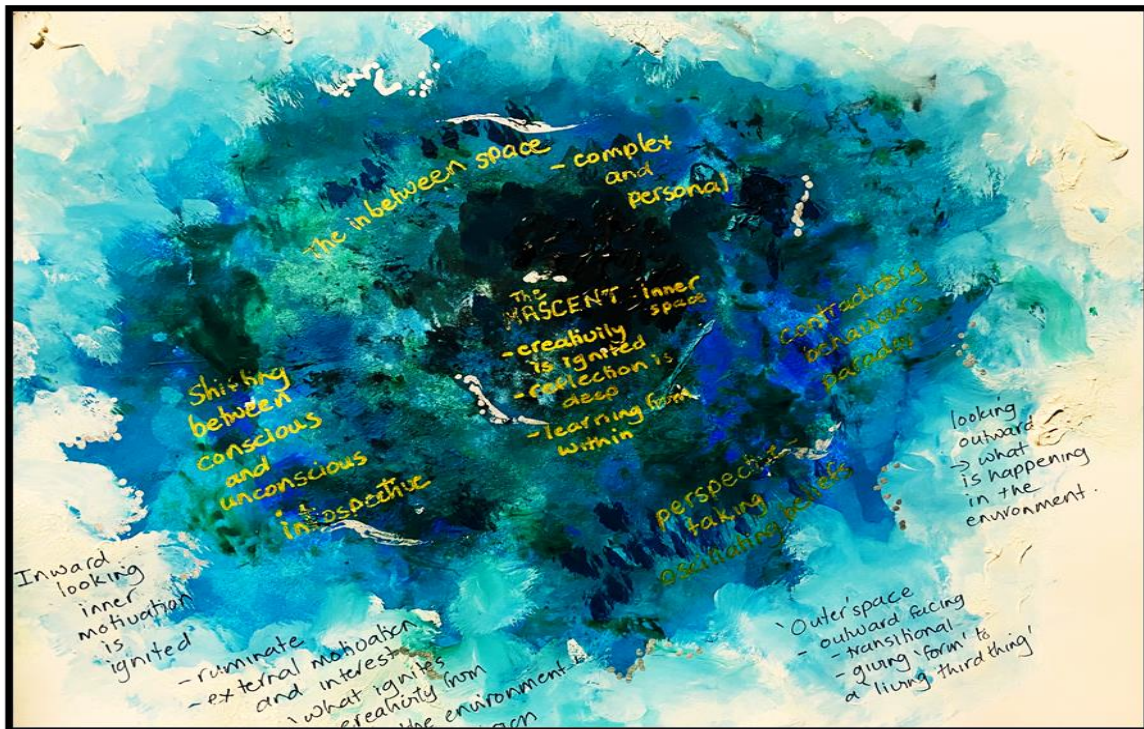 The inbetween space
- complex
and
personal
The
NASCENT - inner
space
- creativily
is ignited
- reflection is
deep
- learning from
within
contradictory
behaviours
paradox
Shifting
between
conscious
and
unconscious
introspective
perspective-
taking
oscillating beliefs
looking
outward
→ what
is happening
in the
environment.
Inward
looking
inner
motivation
is
ignited
- ruminate
- external motivation
and interest
'what ignites
creativity from
the environment to
'Outer'space
- outward facing
- transitional
- giving 'form' to
a 'living third thing'